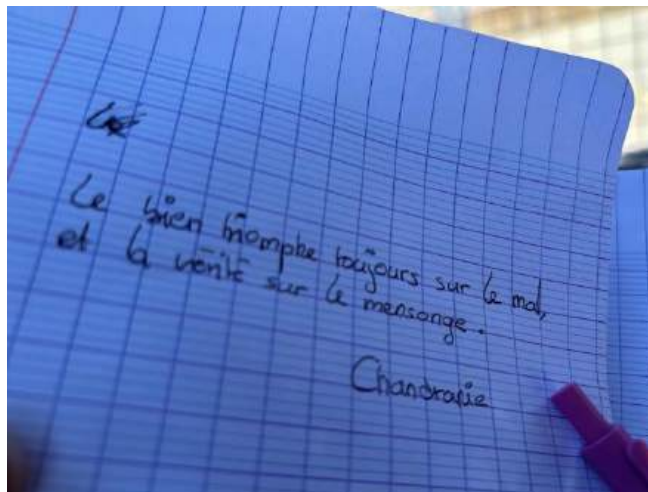 Le bien triomphe toujours sur le mal,
et la vérité sur le mensonge.
Chandrapie